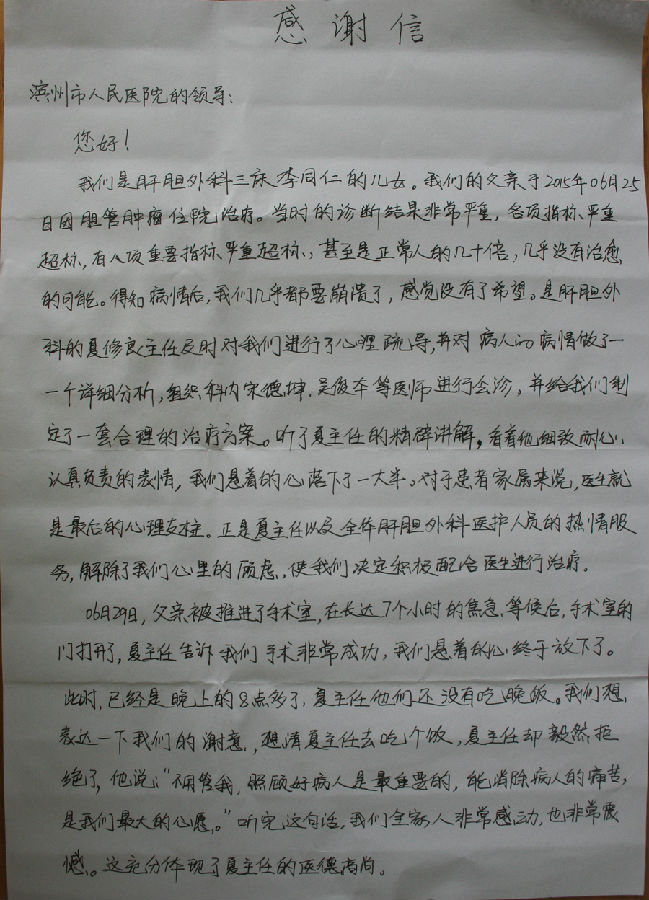 感谢信
滨州市人民医院的领导:
您好!
我们是肝胆外科三床李同仁的儿女。我们的父亲于2015年06月25
日因胆管肿瘤住院治疗。当时的诊断结果非常严重,各项指标严重
超标,有八项重要指标严重超标,甚至是正常人的几十倍,几乎没有治愈
的可能。得知病情后,我们几乎都要崩溃了,感觉没有了希望。是肝胆外
科的夏修良主任及时对我们进行了心理疏导,并对病人的病情做了一
一个详细分析,组织科内宋德坤、吴俊车等医师进行会诊,并给我们制
定了一套合理的治疗方案。听了夏主任的精辟讲解,看着他细致耐心、
认真负责的表情,我们悬着的心落下了一大半。对于患者家属来说,医生就
是最后的心理支柱。正是夏主任以及全体肝胆外科医护人员的热情服
务,解除了我们心里的顾虑,使我们决定积极配合医生进行治疗。
06月29日,父亲被推进了手术室,在长达7个小时的焦急等候后,手术室的
门打开了,夏主任告诉我们手术非常成功,我们悬着的心终于放下了。
此时,已经是晚上的8点多了,夏主任他们还没有吃晚饭。我们想
表达一下我们的谢意,想请夏主任去吃个饭,夏主任却毅然拒
绝了,他说:“不用管我,照顾好病人是最重要的,能消除病人的痛苦,
是我们最大的心愿。”听完这句话,我们全家人非常感动,也非常震
憾。这充分体现了夏主任的医德高尚。